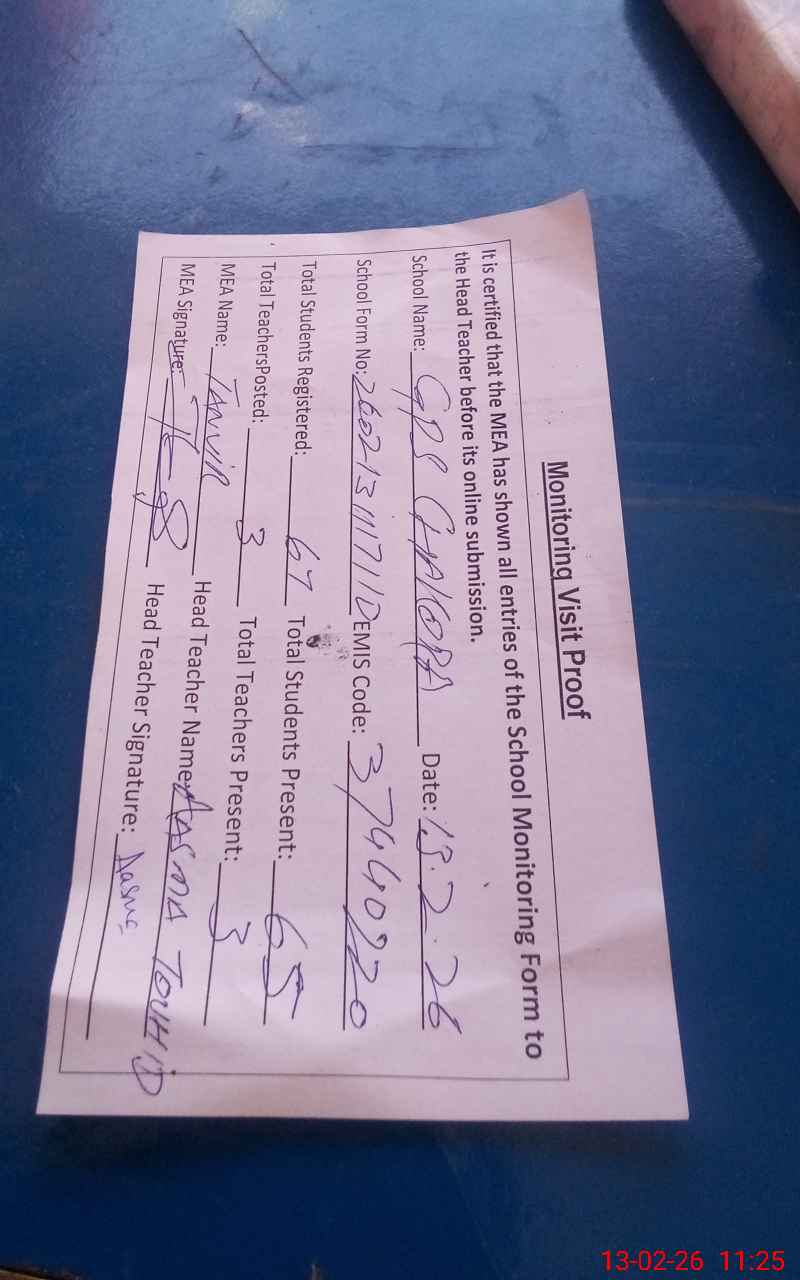 Monitoring Visit Proof
It is certified that the MEA has shown all entries of the School Monitoring Form to
the Head Teacher before its online submission.
School Name: GPS CHAKORA Date: 13.2.26
School Form No: 260213111711D EMIS Code: 37440220
Total Students Registered: 67 Total Students Present: 65
Total TeachersPosted: 3 Total Teachers Present: 3
MEA Name: TANVIR Head Teacher Name: AASMA TOUHID
MEA Signature: Head Teacher Signature: Aasma
13-02-26 11:25